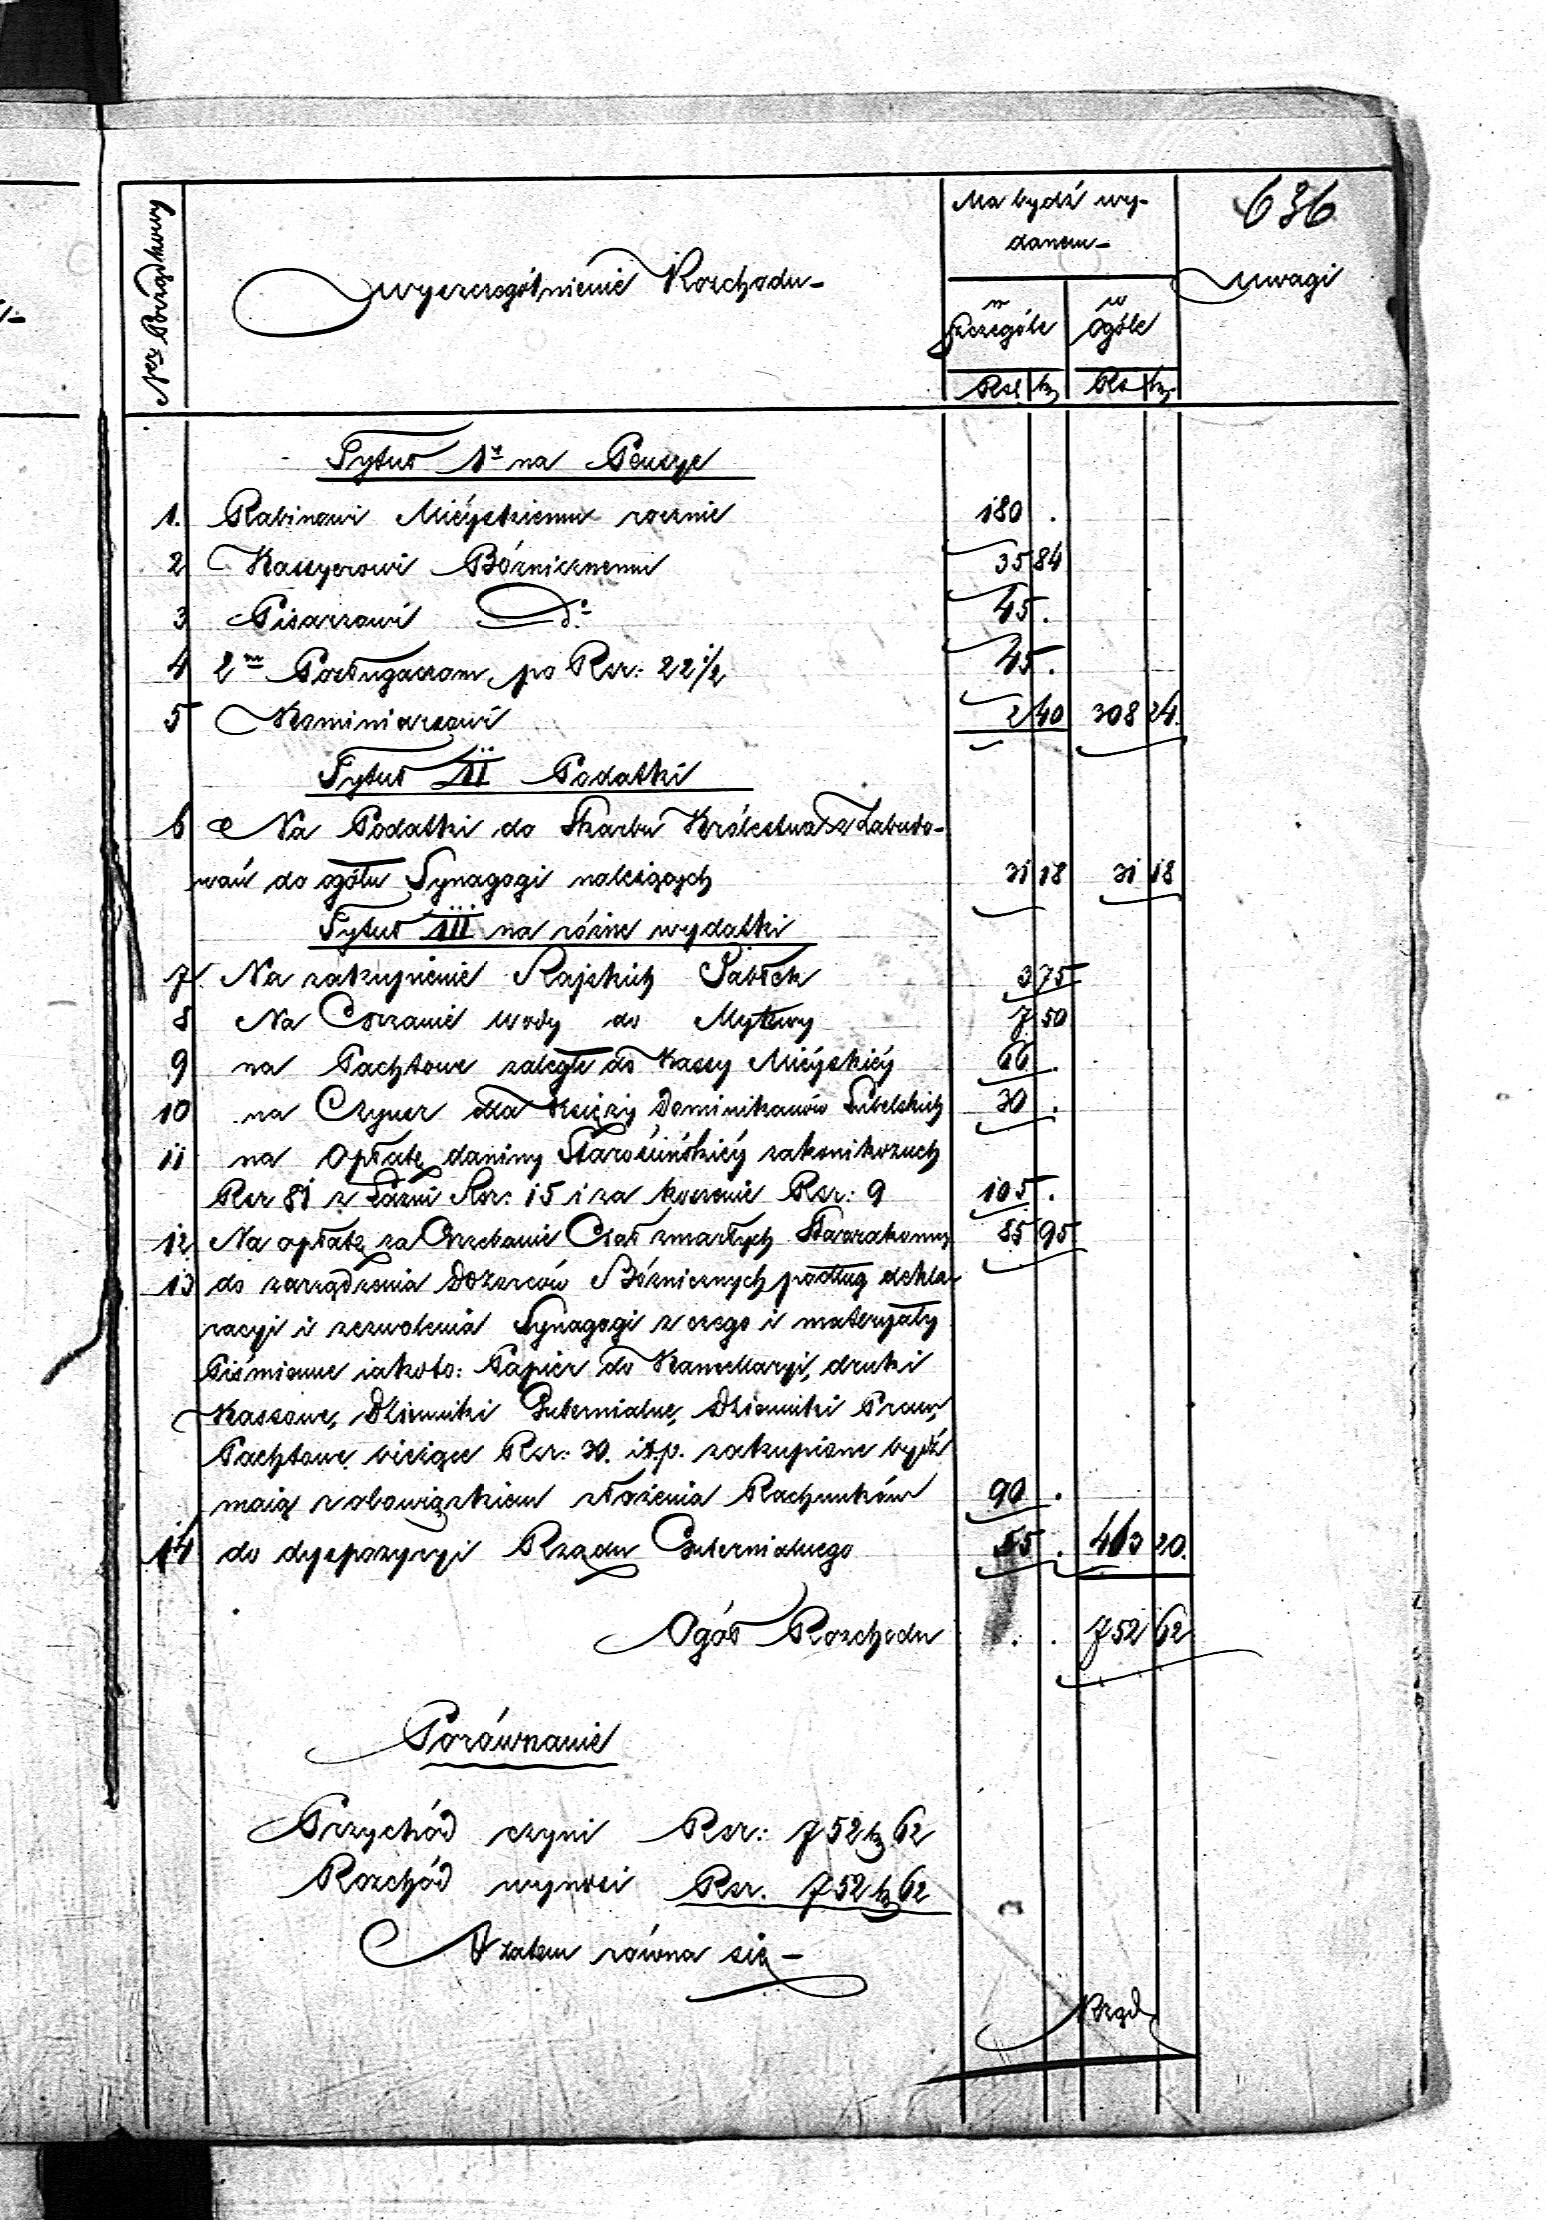 636
Ner Porządkowy
Wyszczególnienie Rozchodu
Ma bydź wy-
danem
Uwagi
w szczególe
w ogóle
Rsr kp Rs kp
Tytuł I na Pensye
1. Rabinowi Mieyskiemu rocznie 180 .
2 Kassyerowi Bóżnicznemu 35 84
3 Pisarzowi do 45 .
4 2m Posługaczom po Rsr: 22 1/2 45 .
5 Kominiarzowi 2 40 308 24.
Tytuł II Podatki
6 Na Podatki do Skarbu Królestwa z Zabudo-
wań do ogółu Synagogi należących 31 18 31 18
Tytuł III na różne wydatki
7. Na zakupienie Rajskich Jabłek 3 75
8 Na Czerzanie wody do Mykwy 7 50
9 na Pachtowe zaległe do Kassy Mieyskiey 66 .
10 na Czynsz dla Księży Dominikanów Lubelskich 30 .
11 na opłatę daniny Starościńskiey
Rsr 81 z Łaźni Rsr: 15 i za koszenie Rsr: 9 105 .
12 Na opłatę za Grzebanie Ciał zmarłych Starozakonnych 85 95
13 do zarządzenia Dozorców Bóżnicznych podług dekla-
racyi i zezwolenia Synagogi z czego i materyały
Piśmienne iakoto: Papier do Kancellaryi, druki
Kassowe, Dzienniki Gubernialne, Dzienniki Praw,
Pachtowe bieżące Rsr: 30. itp. zakupione bydź
maią z obowiązkiem złożenia Rachunków 90 .
14 do dyspozycyi Rządu Gubernialnego 55 . 413 20.
Ogół Rozchodu . . 752 62
Porównanie
Przychód czyni Rsr: 752 kp 62
Rozchód wynosi Rsr. 752 kp 62
A zatem równa się
Rząd